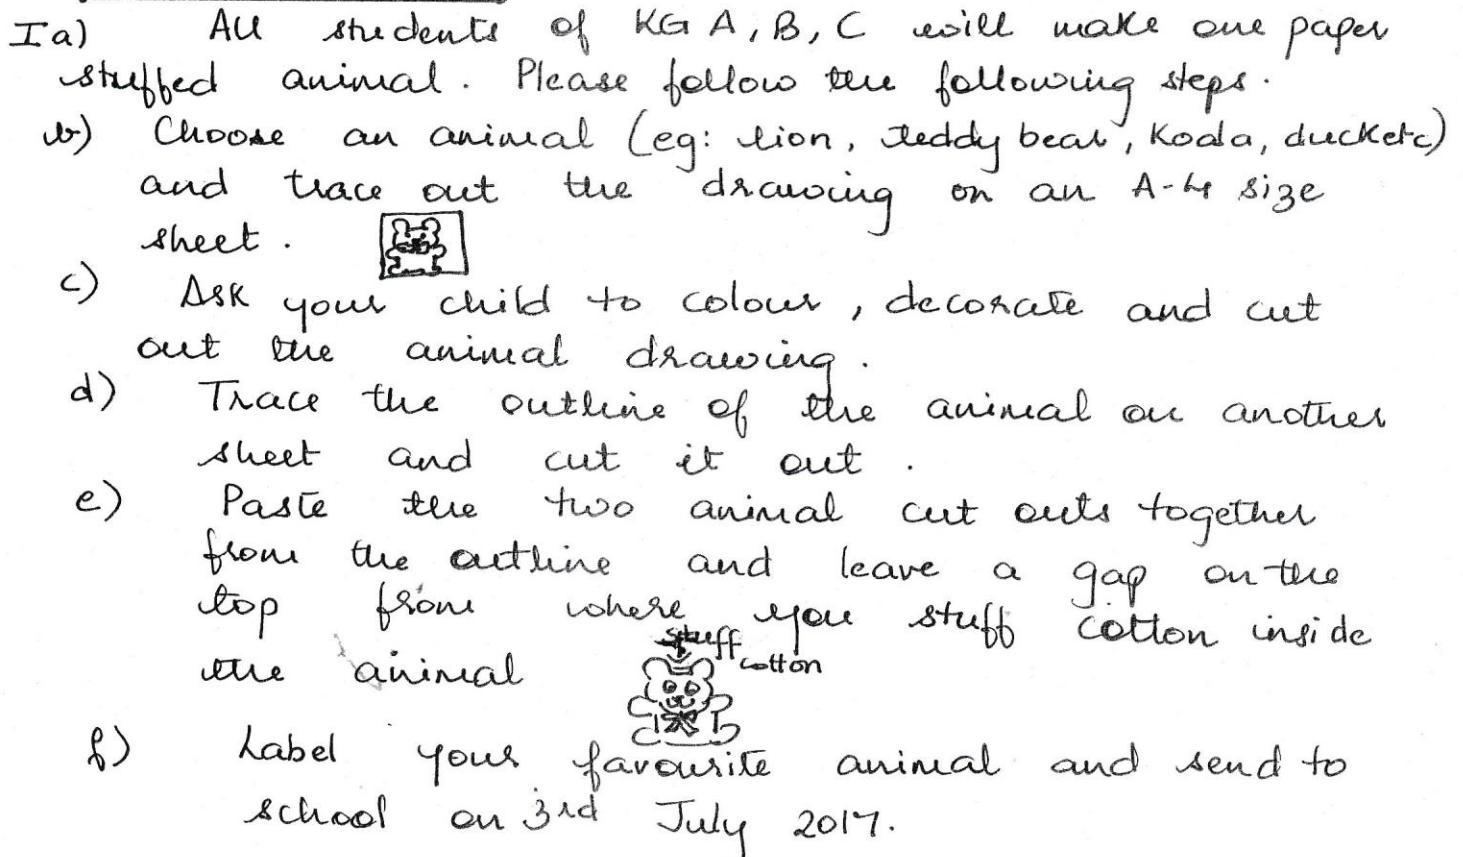 I a) All students of KG A, B, C will make one paper
stuffed animal. Please follow the following steps.
b) Choose an animal (eg: lion, teddy bear, Koala, duck etc)
and trace out the drawing on an A-4 size
sheet.
c) Ask your child to colour, decorate and cut
out the animal drawing.
d) Trace the outline of the animal on another
sheet and cut it out.
e) Paste the two animal cut outs together
from the outline and leave a gap on the
top from where you stuff cotton inside
the animal
stuff
cotton
f) Label your favourite animal and send to
school on 3rd July 2017.